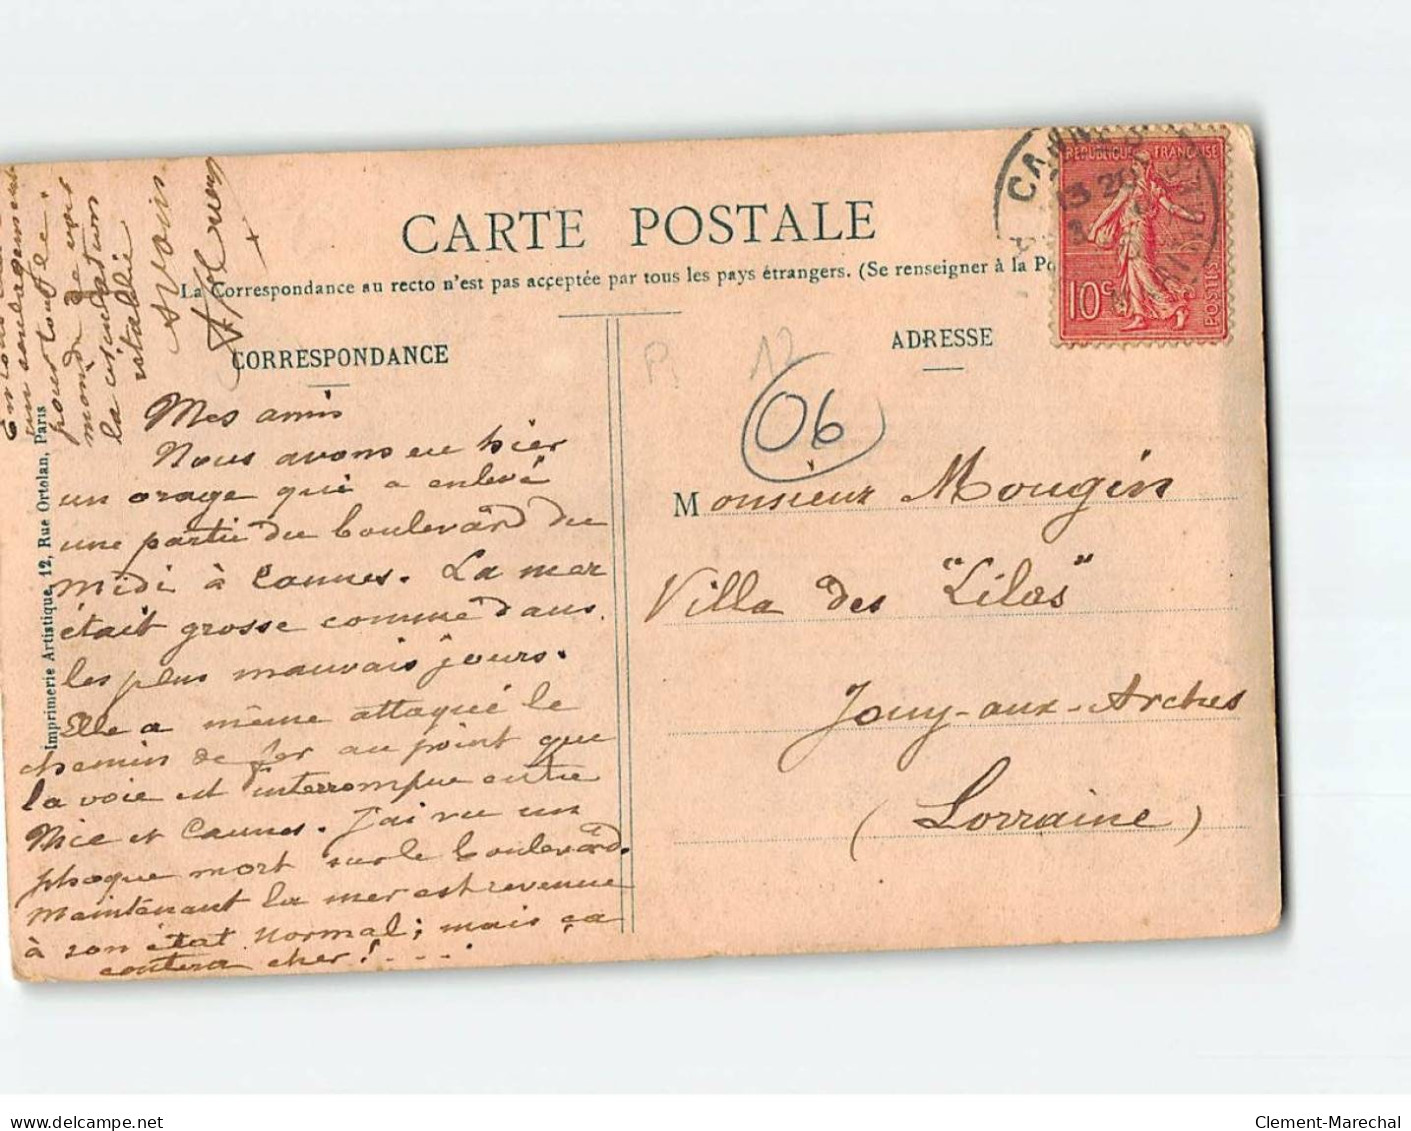 CARTE POSTALE
La Correspondance au recto n'est pas acceptée par tous les pays étrangers. (Se renseigner à la Po
CORRESPONDANCE
ADRESSE
Imprimerie Artistique, 12, Rue Ortolan, Paris
Mes amis
Nous avons eu hier
un orage qui a enlevé
une partie du boulevard du
Midi à Cannes. La mer
était grosse comme dans
les plus mauvais jours.
Elle a même attaqué le
chemin de fer au point que
la voie est interrompue entre
Nice et Cannes. J'ai vu un
phoque mort sur le boulevard.
Maintenant la mer est revenue
à son état normal; mais ça
contera cher! . . . .
un soulagement
pour toute le
monde de voir
la circulation
rétablie
REPUBLIQUE FRANÇAISE
10c
POSTES
P.
12
06
Monsieur Mougin
Villa des "Lilas"
Jouy-aux-Arches
(Lorraine)
Clement-Marechal
www.delcampe.net